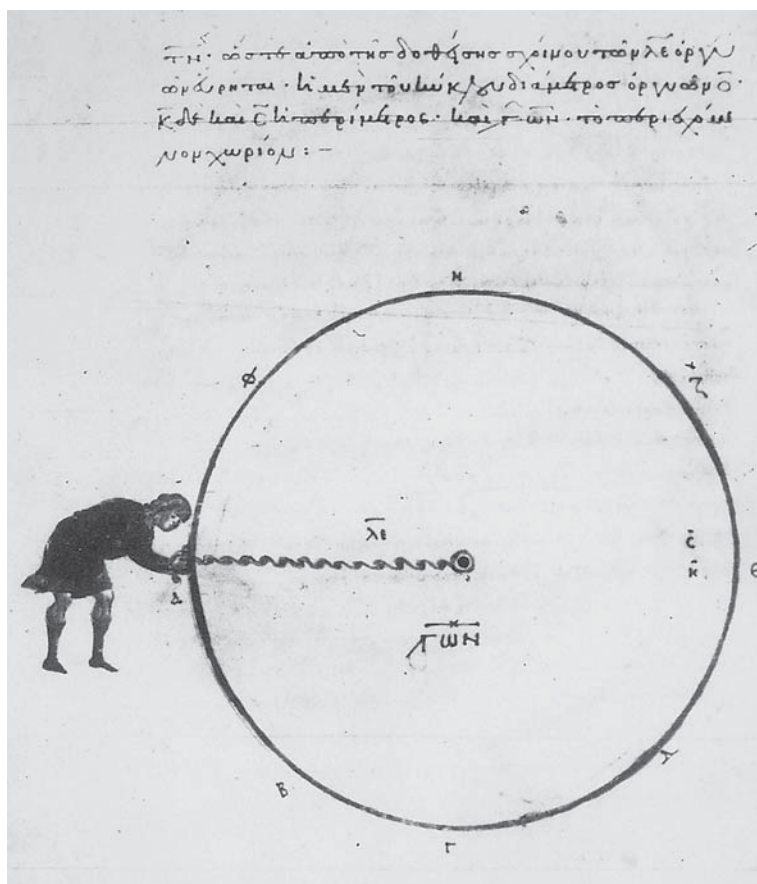 ὥστε ἀπὸ τῆς δοθείσης σχοίνου τῶν λ̅ε̅ ὀργυ
ῶν εὕρηται· ἡ μὲν τοῦ κύκλου διάμετρος ὀργυῶν ο̅·
κ̅ δὲ καὶ σ̅ ἡ περίμετρος· καὶ ͵γ̅ω̅ν̅· τὸ περιεχόμε
νον χωρίον : –
Η
Φ
Ζ
λ̅ε̅
σ̅
κ̅
Θ
Δ
͵Γ̅Ω̅Ν̅
Β
Γ